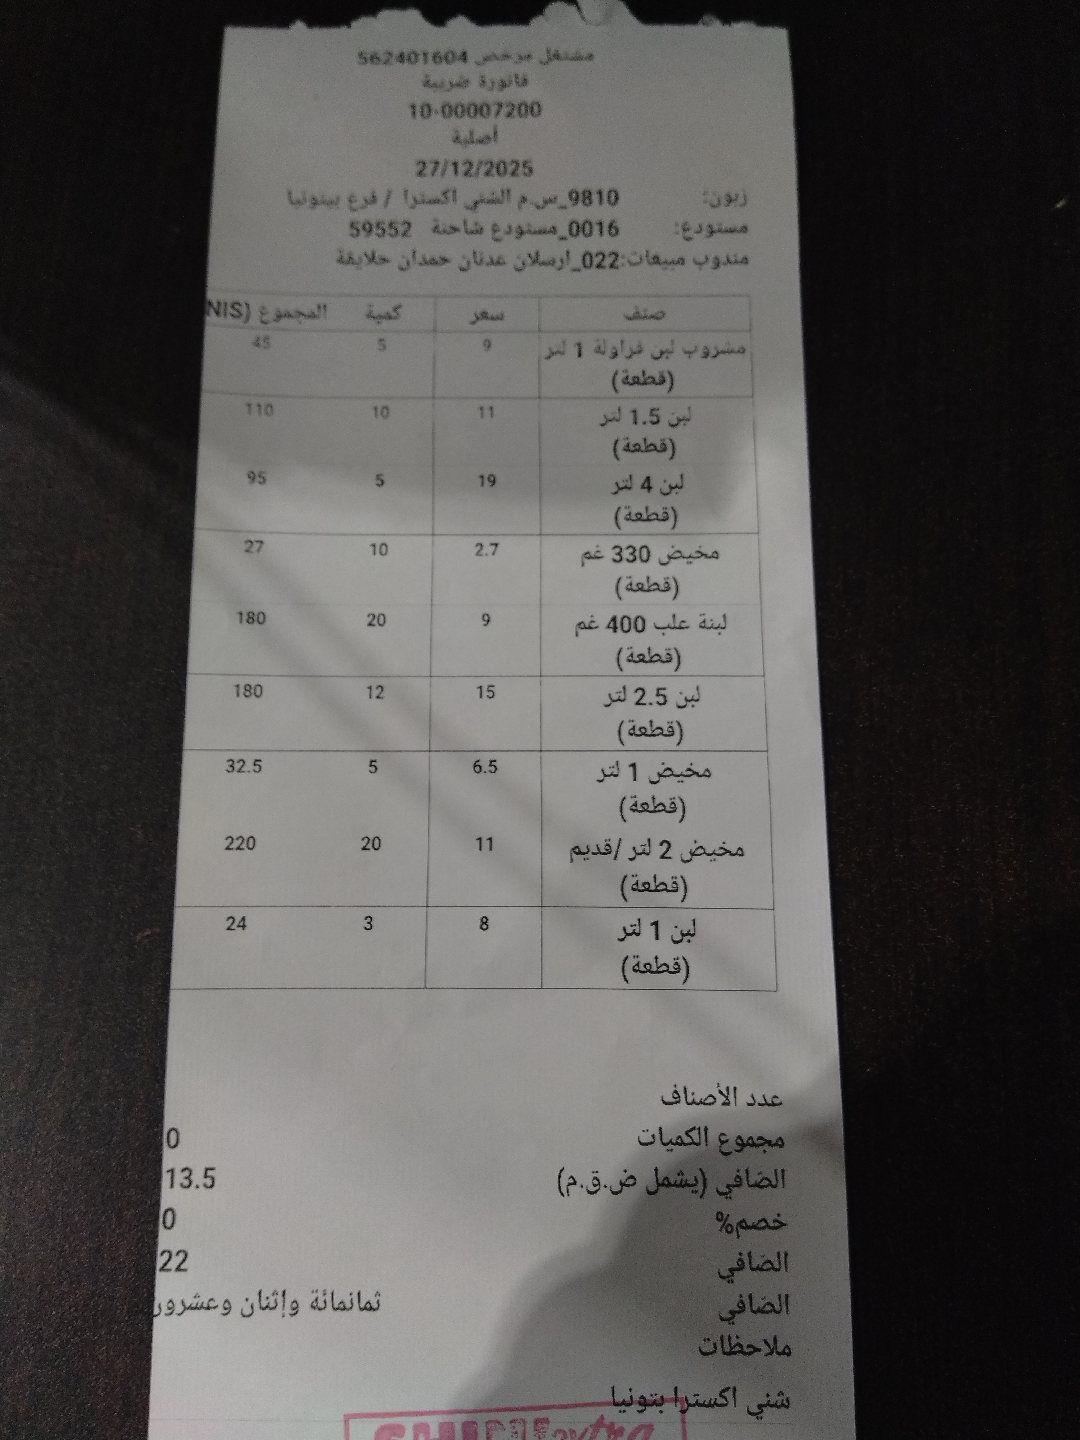 مشتغل مرخص 562401604
فاتورة ضريبة
10-00007200
أصلية
27/12/2025
زبون: 9810_س.م الشني اكسترا / فرع بيتونيا
مستودع: 0016_مستودع شاحنة 59552
مندوب مبيعات:022_ارسلان عدنان حمدان حلايقة
صنف سعر كمية المجموع (NIS
مشروب لبن فراولة 1 لتر 9 5 45
(قطعة)
لبن 1.5 لتر 11 10 110
(قطعة)
لبن 4 لتر 19 5 95
(قطعة)
مخيض 330 غم 2.7 10 27
(قطعة)
لبنة علب 400 غم 9 20 180
(قطعة)
لبن 2.5 لتر 15 12 180
(قطعة)
مخيض 1 لتر 6.5 5 32.5
(قطعة)
مخيض 2 لتر /قديم 11 20 220
(قطعة)
لبن 1 لتر 8 3 24
(قطعة)
عدد الأصناف
مجموع الكميات 0
الصافي (يشمل ض.ق.م) 13.5
خصم% 0
الصافي 22
الصافي ثمانمائة وإثنان وعشرون
ملاحظات
شني اكسترا بتونيا
SHINI extra